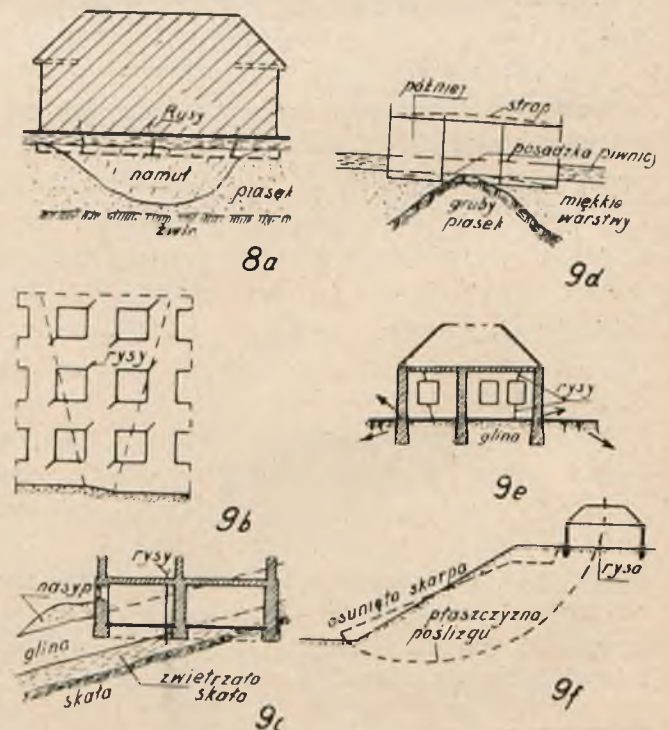 Rysy
namuł
piasek
żwir
8a
później
strop
posadzka piwnicy
gruby
piasek
miękkie
warstwy
9d
rysy
9b
rysy
glina
9e
rysy
nasyp
glina
zwietrzała
skała
skała
9c
osunięta skarpa
płaszczyzna
poślizgu
rysa
9f